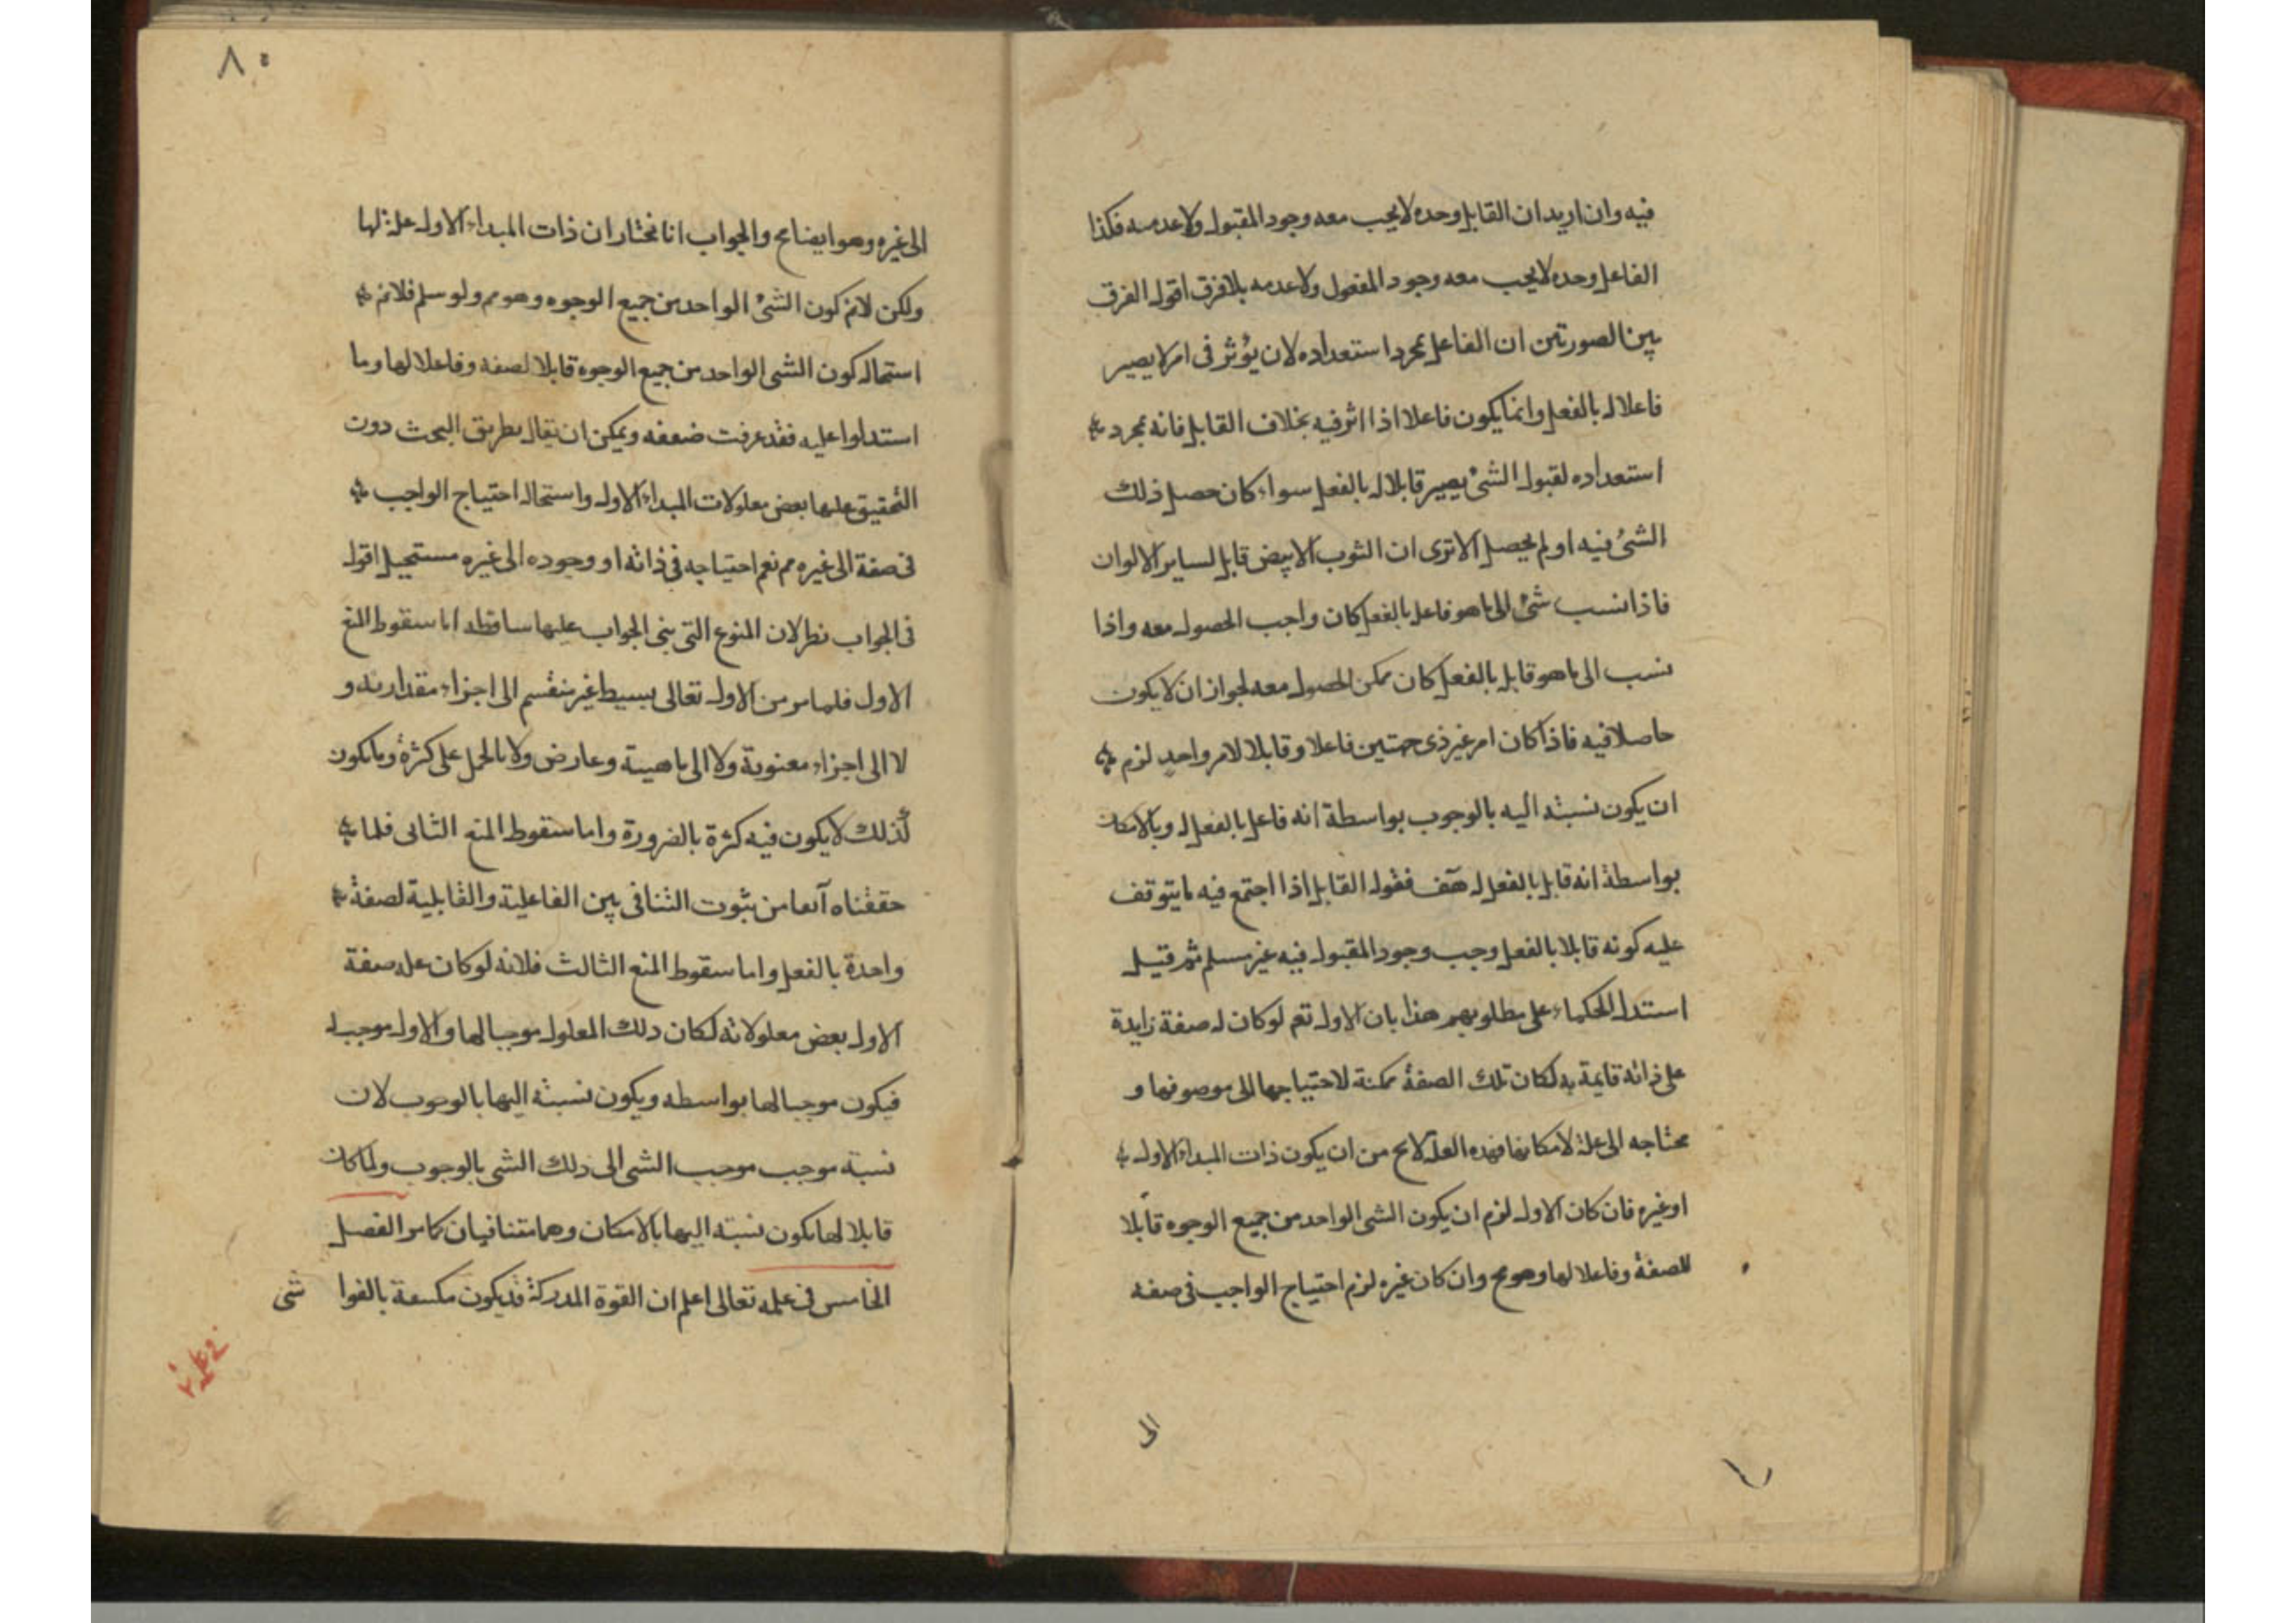 فيه وان اريد ان القابل وحده لا يجب معه وجود المقبول ولا عدمه فكذا
الفاعل وحده لا يجب معه وجود المفعول ولا عدمه بلا فرق اقول الفرق
بين الصورتين ان الفاعل بمجرد استعداده لان يؤثر فى امر لا يصير
فاعلا له بالفعل وانما يكون فاعلا اذا اثر فيه بخلاف القابل فانه بمجرد
استعداده لقبول الشئ يصير قابلا له بالفعل سواء كان حصل ذلك
الشئ فيه او لم يحصل الا ترى ان الثوب الابيض قابل لساير الالوان
فاذا نسب شئ الى ما هو فاعل بالفعل كان واجب الحصول معه واذا
نسب الى ما هو قابل بالفعل كان ممكن الحصول معه لجواز ان لا يكون
حاصلا فيه فاذا كان امر غير ذى جهتين فاعلا وقابلا لامر واحد لزم
ان يكون نسبته اليه بالوجوب بواسطة انه فاعل بالفعل له وبالامكان
بواسطة انه قابل بالفعل له هف فقوله القابل اذا اجتمع فيه ما يتوقف
عليه كونه قابلا بالفعل وجب وجود المقبول فيه غير مسلم ثم قيل
استدل الحكماء على مطلوبهم هذا بان الاول تعم لوكان له صفة زايدة
على ذاته قايمة به لكان تلك الصفة ممكنة لاحتياجها الى موصوفها و
محتاجه الى علة لامكانها فهذه العلة لا يخ من ان يكون ذات المبداء الاول
او غيره فان كان الاول لزم ان يكون الشى الواحد من جميع الوجوه قابلا
للصفة وفاعلا لها وهو مح وان كان غيره لزم احتياج الواجب فى صفه
الى
٨٠
الى غيره وهو ايضا مح والجواب انا نختار ان ذات المبداء الاول علة لها
ولكن لانم كون الشئ الواحد من جميع الوجوه وهو مم ولو سلم فلانم
استحاله كون الشى الواحد من جميع الوجوه قابلا لصفه وفاعلا لها وما
استدلوا عليه فقد عرفت ضعفه ويمكن ان يقال بطريق البحث دون
التحقيق علتها بعض معلولات المبداء الاول واستحاله احتياج الواجب
فى صفة الى غيره مم نعم احتياجه فى ذاته او وجوده الى غيره مستحيل اقول
فى الجواب نظر لان المنوع التى بنى الجواب عليها ساقطه اما سقوط المنع
الاول فلما مر من الاول تعالى بسيط غير منقسم الى اجزاء مقداريه و
لا الى اجزاء معنوية ولا الى ماهية وعارض ولا بالحمل على كثرة وما يكون
كذلك لا يكون فيه كثرة بالضرورة واما سقوط المنع الثانى فلما
حققناه آنفا من ثبوت التنافى بين الفاعلية والقابلية لصفة
واحدة بالفعل واما سقوط المنع الثالث فلانه لو كان علة صفة
الاول بعض معلولاته لكان ذلك المعلول موجبا لها والاول موجب له
فيكون موجبا لها بواسطه ويكون نسبته اليها بالوجوب لان
نسبة موجب موجب الشى الى ذلك الشى بالوجوب ولما كان
قابلا لها يكون نسبته اليها بالامكان وهما متنافيان كما مر الفصل
الخامس فى علمه تعالى اعلم ان القوة المدركة قد يكون مكسعة بالغوا
شى